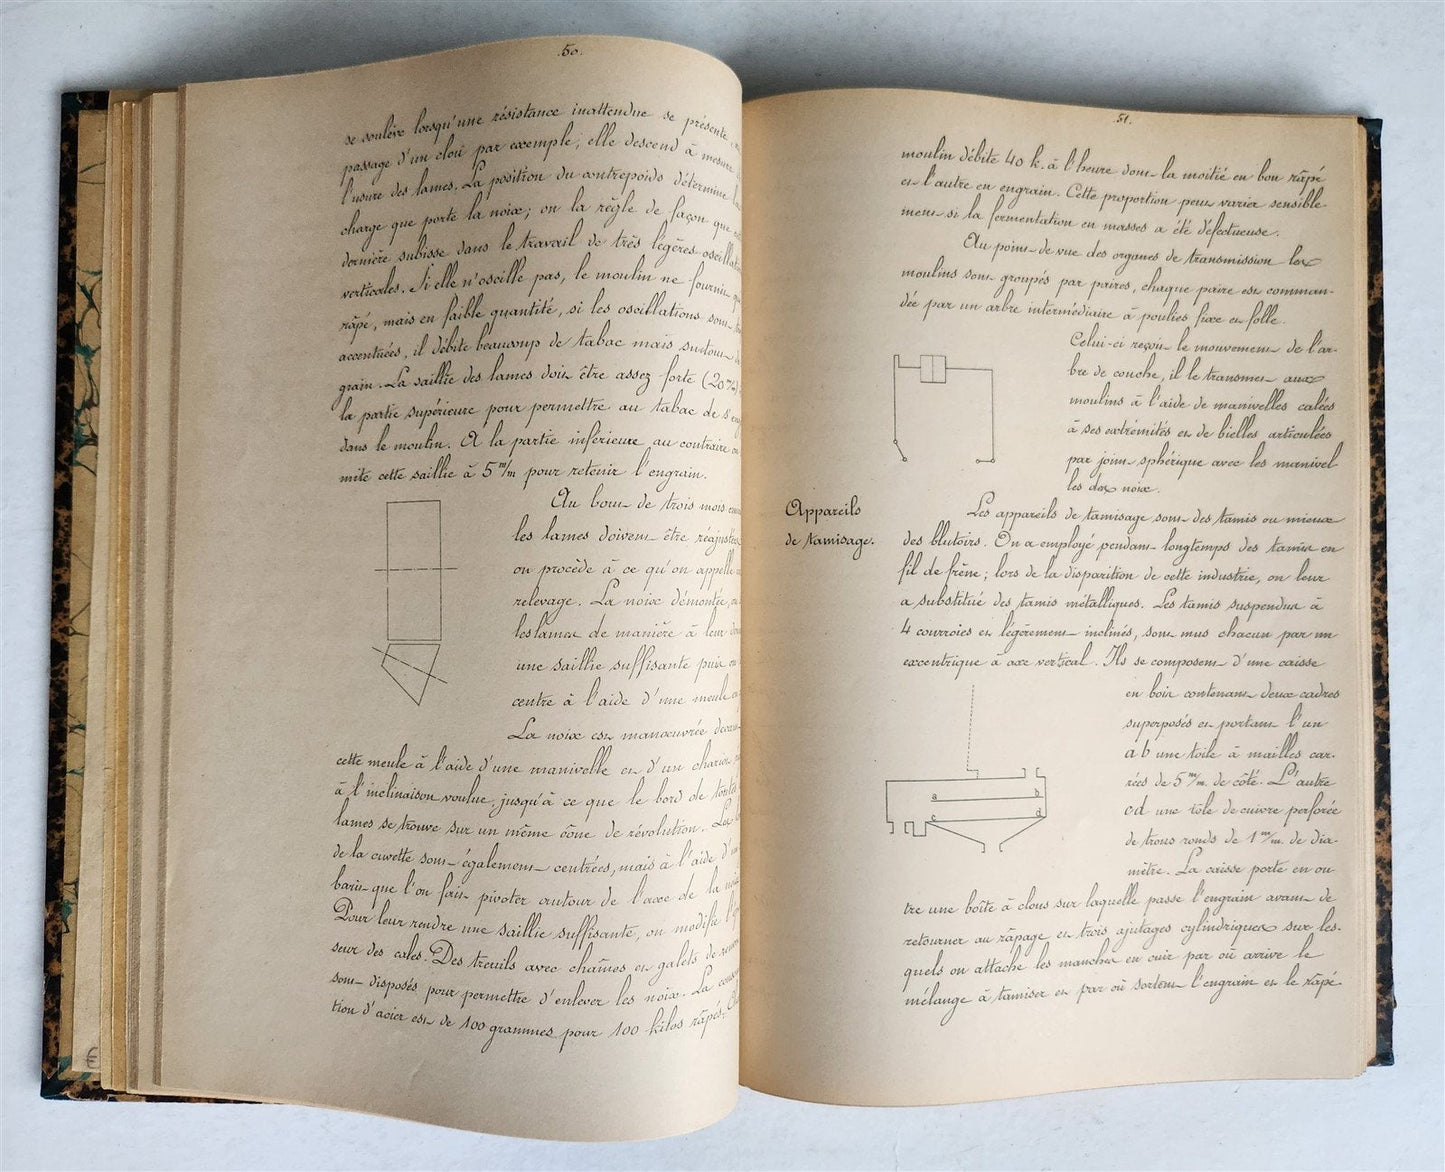 .50.
se soulève lorsqu'une résistance inattendue se présente
passage d'un clou par exemple; elle descend à mesure
l'usure des lames. La position du contrepoids détermine la
charge que porte la noix; on la règle de façon que
dernière subisse dans le travail de très légères oscillati
verticales. Si elle n'oscille pas, le moulin ne fournit
râpé, mais en faible quantité, si les oscillations sont
accentuées, il débite beaucoup de tabac mais surtout
grain. La saillie des lames doit être assez forte (20 m/m)
la partie supérieure pour permettre au tabac de s'eng
dans le moulin. A la partie inférieure au contraire on
mite cette saillie à 5 m/m pour retenir l'engrain.
Au bout de trois mois
les lames doivent être réajustées
on procède à ce qu'on appelle
relevage. La noix démontée,
les lames de manière à leur
une saillie suffisante puis on
centre à l'aide d'une meule
La noix est manœuvrée devant
cette meule à l'aide d'une manivelle et d'un chariot
à l'inclinaison voulue, jusqu'à ce que le bord de toutes
lames se trouve sur un même cône de révolution. Les
de la cuvette sont également centrées, mais à l'aide d'un
baris que l'on fait pivoter autour de l'axe de la noix
Pour leur rendre une saillie suffisante, on modifie l'ép
seur des cales. Des treuils avec chaînes et galets de
sont disposés pour permettre d'enlever les noix. La conso
tion d'acier est de 100 grammes pour 100 kilos râpés.
51.
moulin débite 40 k. à l'heure dont la moitié en bon râpé
et l'autre en engrain. Cette proportion peut varier sensible
ment si la fermentation en masses a été défectueuse.
Au point de vue des organes de transmission les
moulins sont groupés par paires, chaque paire est comman-
dée par un arbre intermédiaire à poulies fixe et folle.
Celui-ci reçoit le mouvement de l'ar-
bre de couche, il le transmet aux
moulins à l'aide de manivelles calées
à ses extrémités et de bielles articulées
par joint sphérique avec les manivel
les des noix.
Appareils
de tamisage.
Les appareils de tamisage sont des tamis ou mieux
des blutoirs. On a employé pendant longtemps des tamis en
fil de frêne; lors de la disparition de cette industrie, on leur
a substitué des tamis métalliques. Les tamis suspendus à
4 courroies et légèrement inclinés, sont mus chacun par un
excentrique à axe vertical. Ils se composent d'une caisse
en bois contenant deux cadres
superposés et portant l'un
a b une toile à mailles car-
rées de 5 m/m. de côté. L'autre
cd une tôle de cuivre perforée
de trous ronds de 1 m/m. de dia-
mètre. La caisse porte en ou
tre une boîte à clous sur laquelle passe l'engrain avant de
retourner au râpage et trois ajutages cylindriques sur les-
quels on attache les manches en cuir par où arrive le
mélange à tamiser et par où sortent l'engrain et le râpé.
a
b
c
d